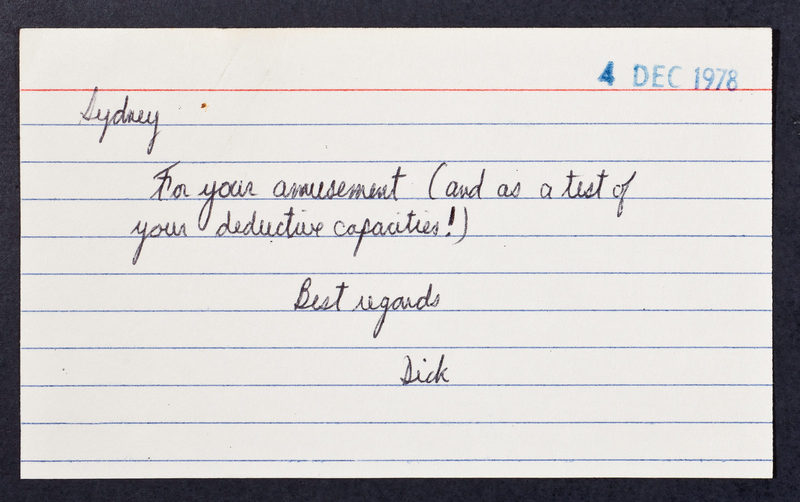 4 DEC 1978
Sydney
For your amusement (and as a test of
your deductive capacities!)
Best regards
Dick